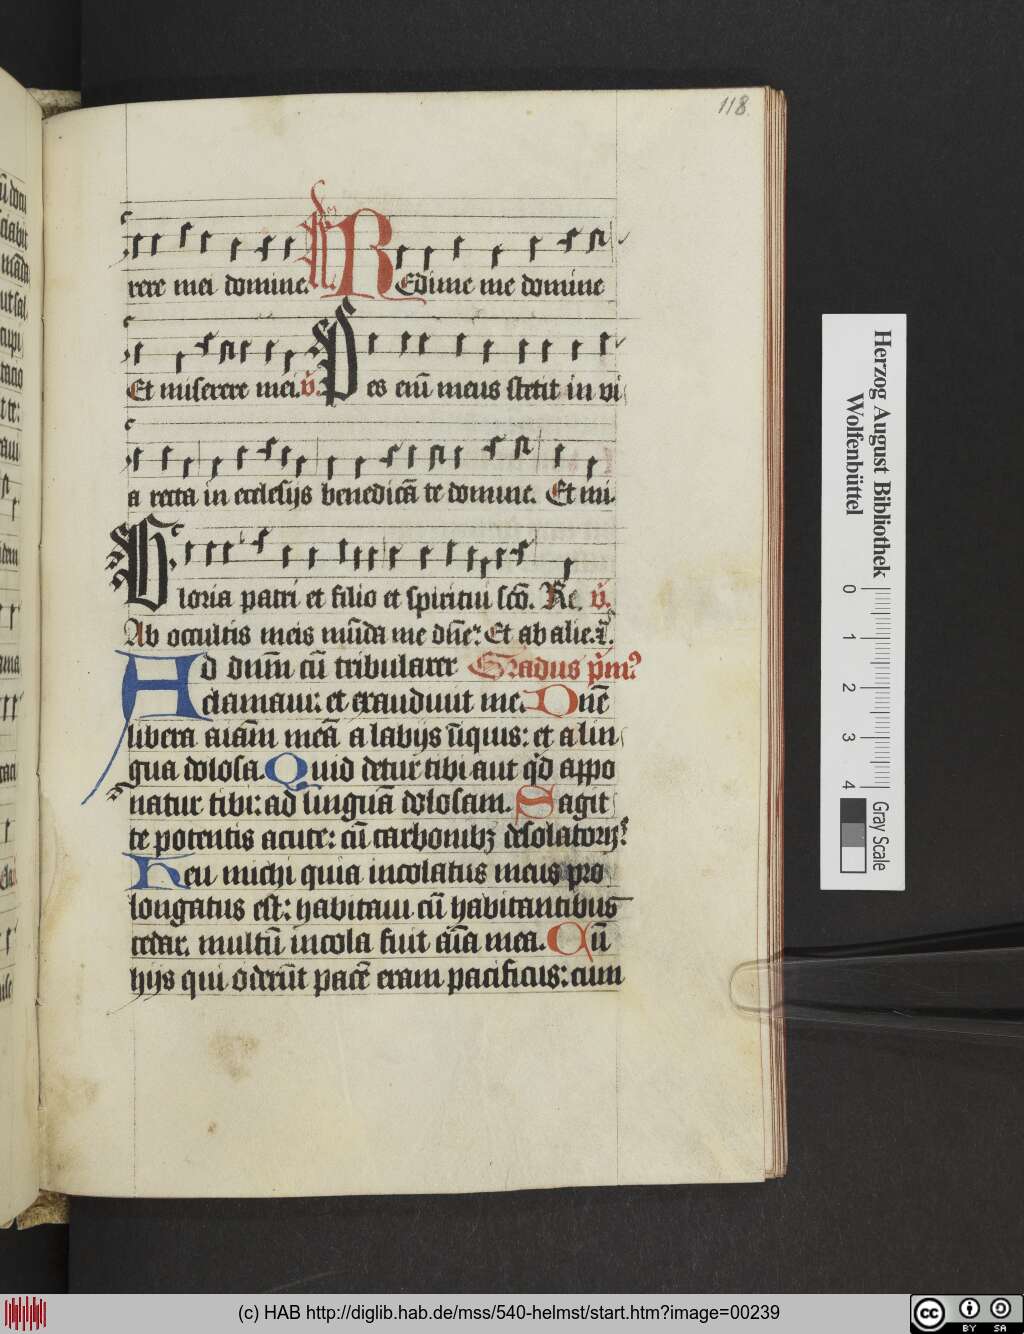 118.
rere mei domine. Redime me domine
Et miserere mei. v̉. Pes eiū meus stetit in vi
a recta in ecclesijs benedicā te domine. Et mi.
Gloria patri et filio et spiritui scō. Re. v̉.
Ab occultis meis mūda me dñe: Et ab alie.
Ad dnm̄ cū tribularer Gradus p̄m⁹
clamaui: et exaudiuit me. Dñe
libera aīam meā a labijs iniquis: et a lin
gua dolosa. Quid detur tibi aut qd appo
natur tibi: ad linguā dolosam. Sagit
te potentis acute: cū carbonibꝫ desolatorijs
Heu michi quia incolatus meus pro
longatus est: habitaui cū habitantibus
cedar. multū incola fuit aīa mea. Cū
hijs qui oderūt pacē eram pacificus: cum
Herzog August Bibliothek
Wolfenbüttel
0 1 2 3 4
Gray Scale
(c) HAB http://diglib.hab.de/mss/540-helmst/start.htm?image=00239
cc BY SA